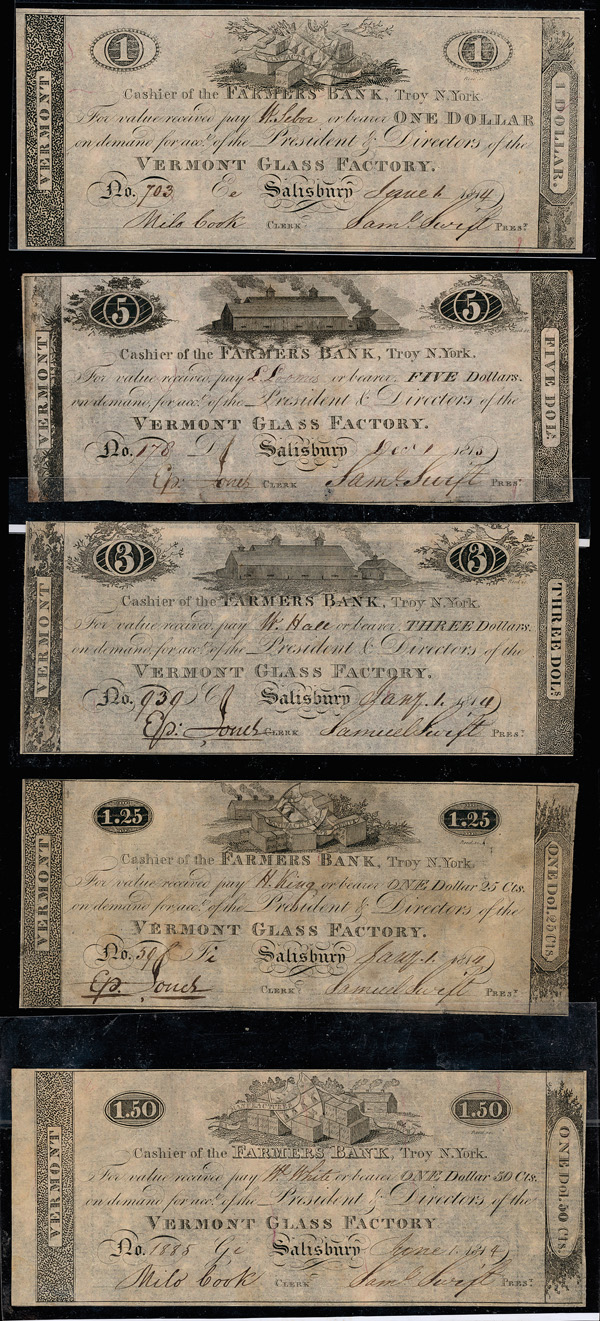 1 1
VERMONT
Cashier of the FARMERS BANK, Troy N.York.
1 DOLLAR.
For value received pay W. Sebor or bearer ONE DOLLAR
on demand for acct. of the President & Directors of the
VERMONT GLASS FACTORY.
No. 703 Ee Salisbury June 1 1814
Milo Cook CLERK Saml. Swift PREST.
5 5
VERMONT
Cashier of the FARMERS BANK, Troy N.York.
FIVE DOL.
For value received, pay L Loomis or bearer, FIVE Dollars.
on demand, for acct. of the President & Directors of the
VERMONT GLASS FACTORY.
No. 178 D Salisbury Dec 1 1813
Ep. Jones CLERK Saml. Swift PREST.
3 3
VERMONT
Cashier of the FARMERS BANK, Troy N.York.
THREE DOLS.
For value received, pay W. Hale or bearer, THREE Dollars.
on demand, for acct. of the President & Directors of the
VERMONT GLASS FACTORY.
No. 939 C Salisbury Jany. 1. 1814
Ep: Jones CLERK Samuel Swift PREST.
1.25 1.25
VERMONT
Cashier of the FARMERS BANK, Troy N.York.
ONE Dol. 25 Cts.
For value received pay H. King or bearer ONE Dollar 25 Cts.
on demand for acct. of the President & Directors of the
VERMONT GLASS FACTORY.
No. Salisbury Jany. 1. 1814
Ep. Jones CLERK Samuel Swift PREST.
1.50 1.50
VERMONT
Cashier of the FARMERS BANK, Troy N.York.
ONE Dol. 50 Cts.
For value received pay W. White or bearer ONE Dollar 50 Cts.
on demand for acct. of the President & Directors of the
VERMONT GLASS FACTORY.
No. 1885 Ge Salisbury June 1. 1814
Milo Cook CLERK Saml. Swift PREST.